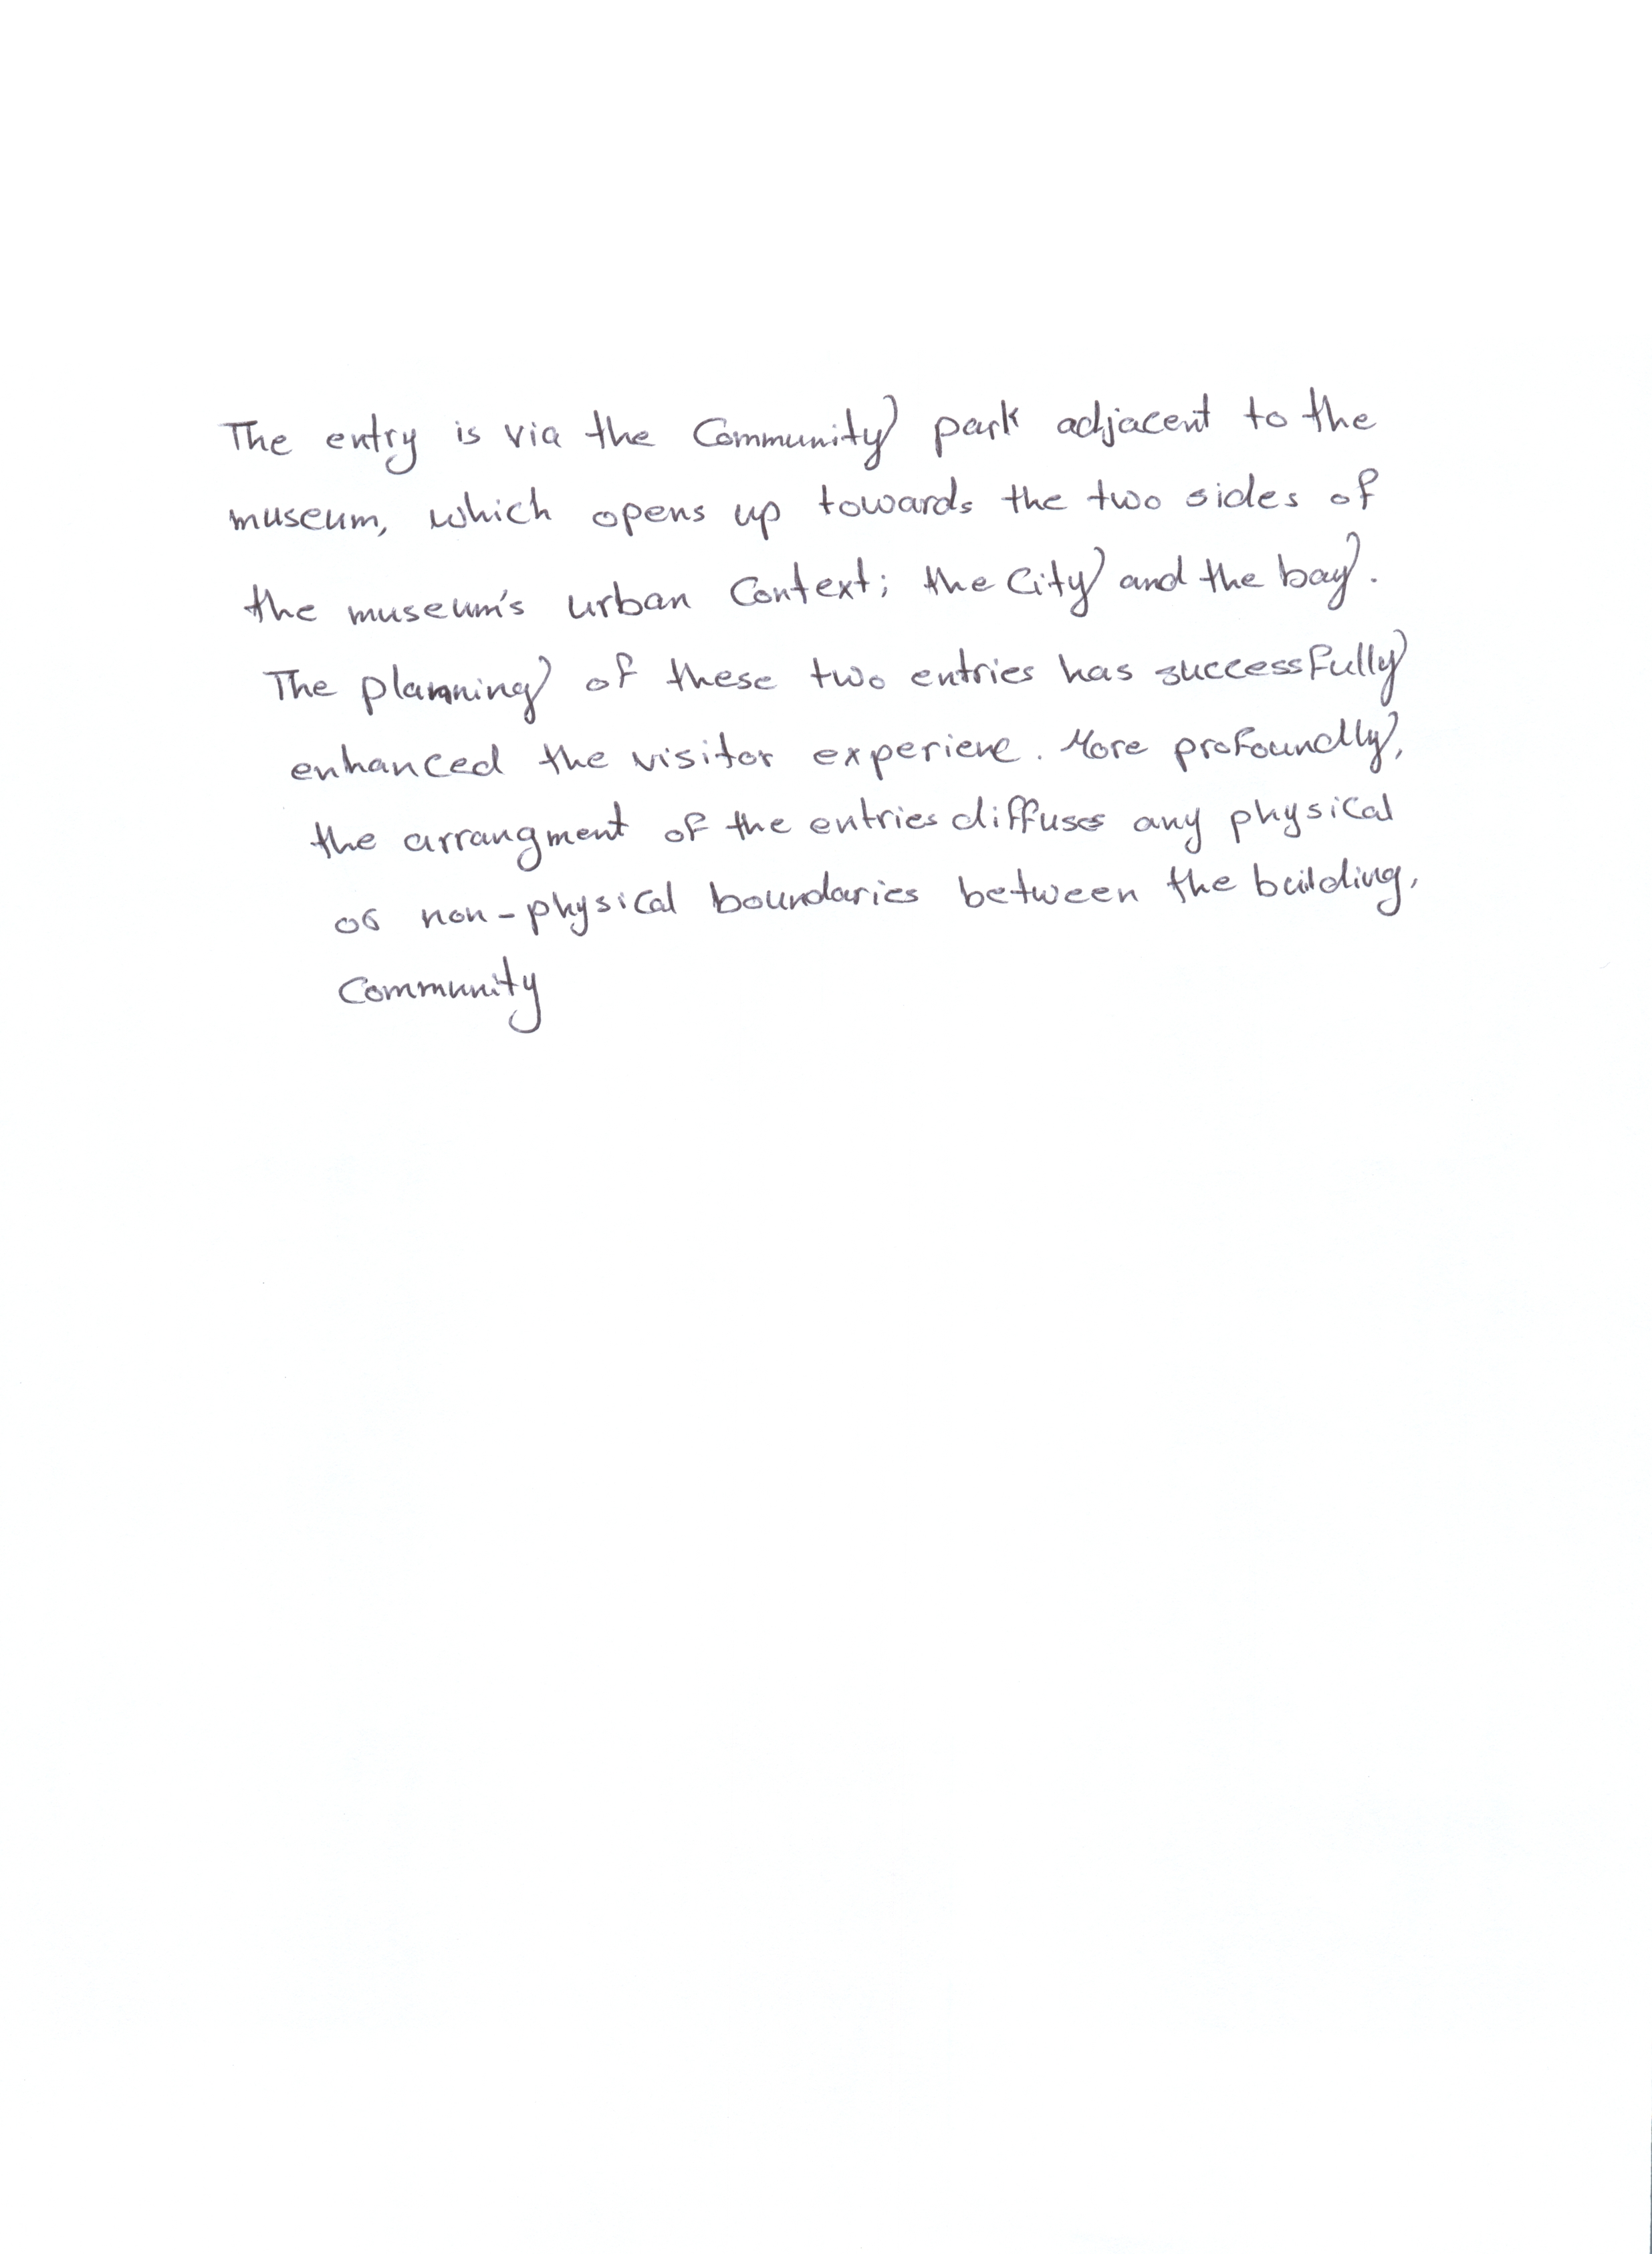 The entry is via the Community park adjacent to the
museum, which opens up towards the two sides of
the museum's urban Context; the City and the bay.
The planning of these two entries has successfully
enhanced the visitor experiene. More profoundly,
the arrangment of the entries diffuses any physical
or non-physical boundaries between the building,
Community